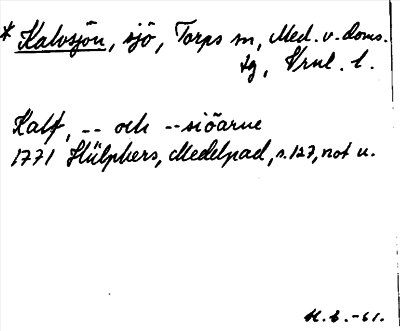 * Kalvsjön, sjö, Torps sn, Med. v. doms.
tg, Vrnl. l.
Kalf, -- och --siöarne
1771 Hülphers, Medelpad, s. 127, not u.
-61.